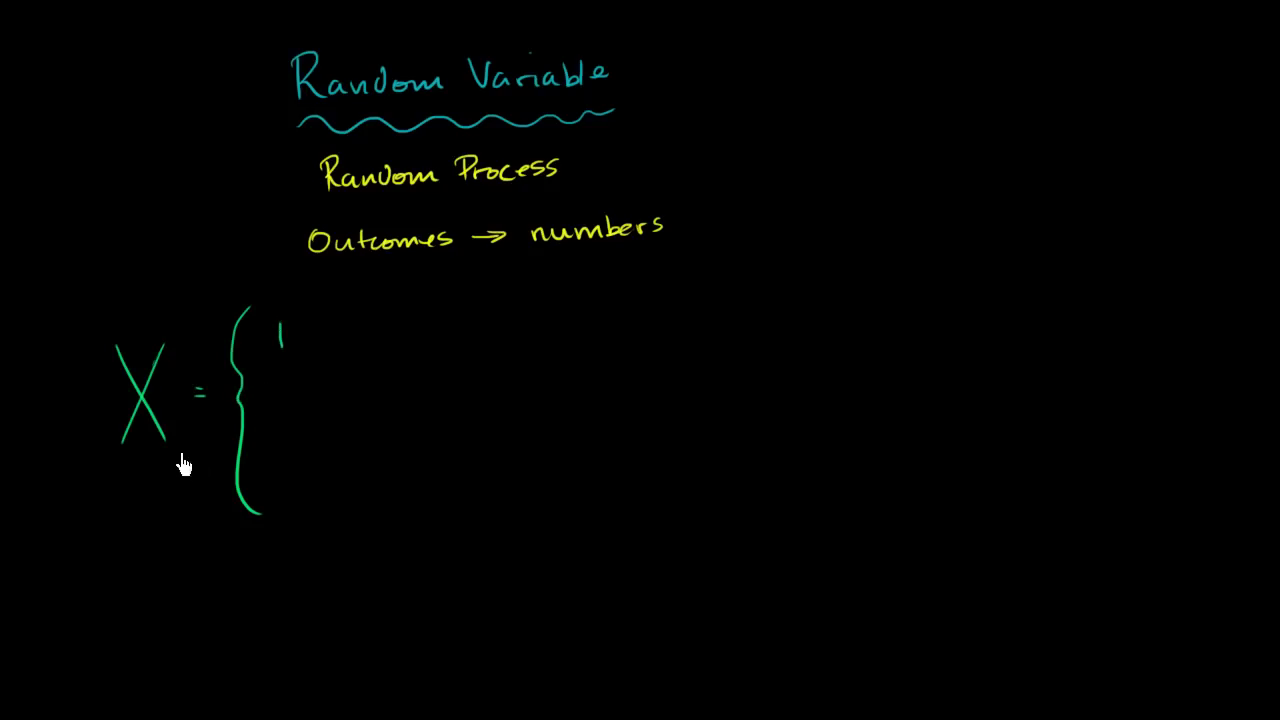 Random Variable
Random Process
Outcomes → numbers
X = { 1